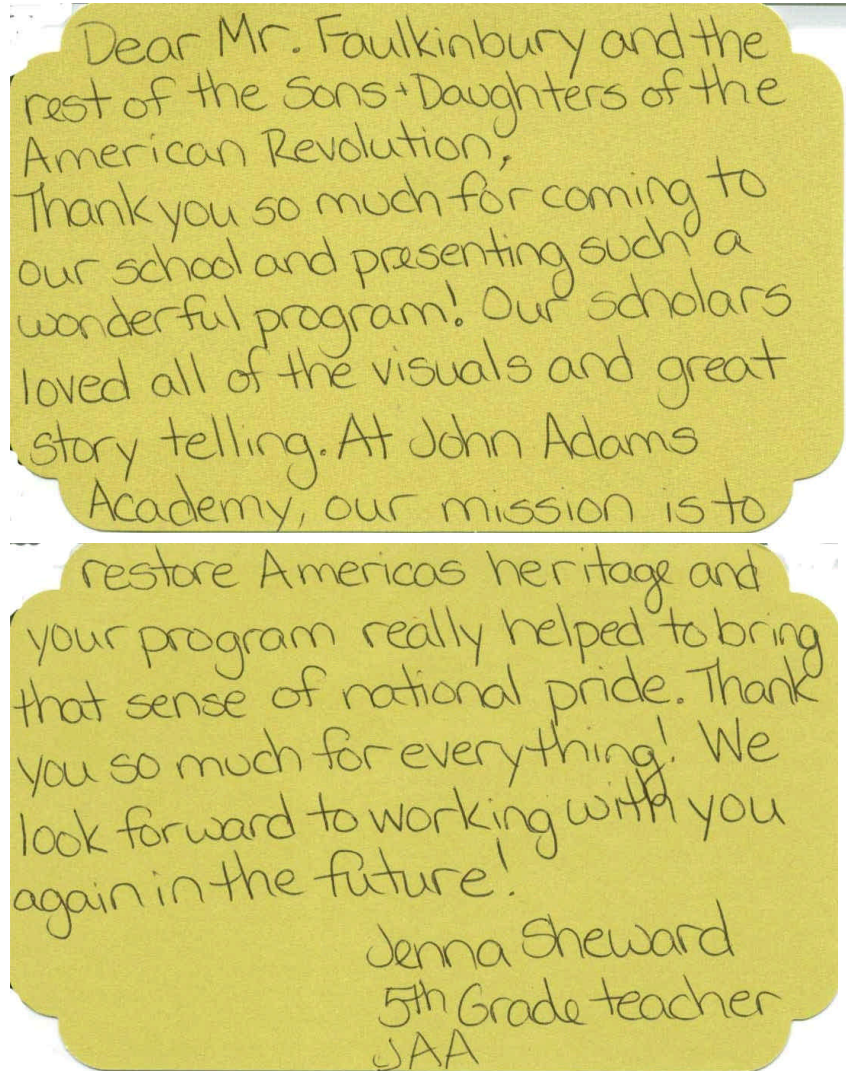 Dear Mr. Faulkinbury and the
rest of the Sons + Daughters of the
American Revolution,
Thank you so much for coming to
our school and presenting such a
wonderful program! Our scholars
loved all of the visuals and great
story telling. At John Adams
Academy, our mission is to
restore Americas heritage and
your program really helped to bring
that sense of national pride. Thank
you so much for everything! We
look forward to working with you
again in the future!
Jenna Sheward
5th Grade teacher
JAA